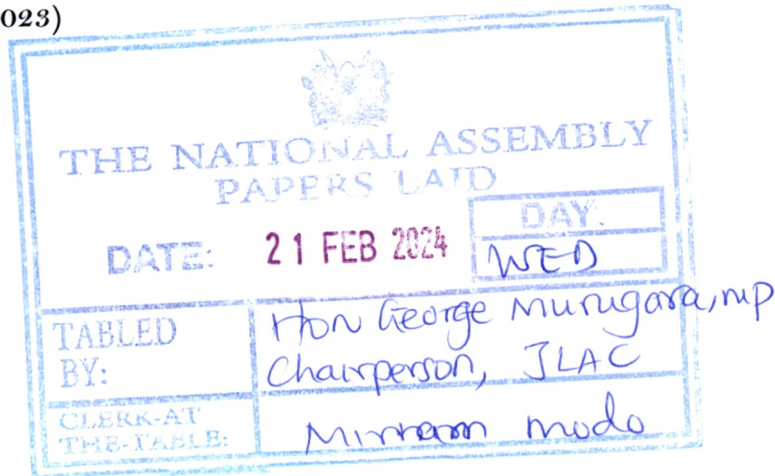 023)
THE NATIONAL ASSEMBLY
PAPERS LAID
DATE: 21 FEB 2024
DAY:
WED
TABLED BY:
Hon George Murugara, MP
Chairperson, JLAC
CLERK-AT THE-TABLE:
modo